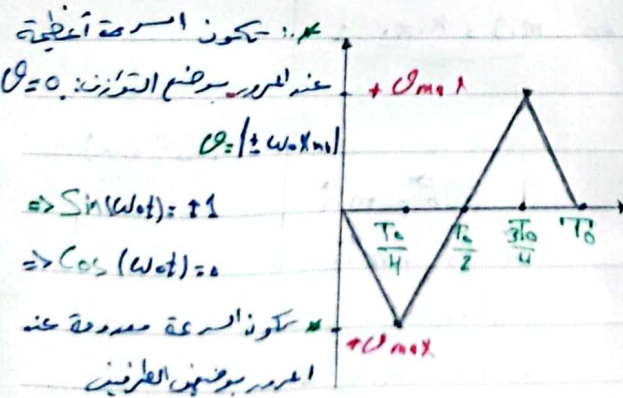 * تكون السرعة أعظمية
عند المرور بوضع التوازن: θ=0
v=|±ω₀Xm|
=> Sin(ω₀t)=±1
=> Cos(ω₀t)=0
* تكون السرعة معدومة عند
المرور بوضعي الطرفين
+ v max
T₀/4 T₀/2 3T₀/4 T₀
+v max